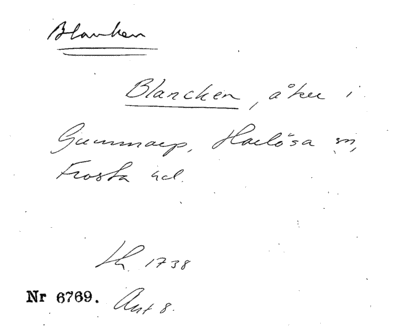 Blanken
Blancken, åker i
Gummarp, Harlösa sn,
Frosta hd.
Lh. 1738
Nr 6769. Ant 8.